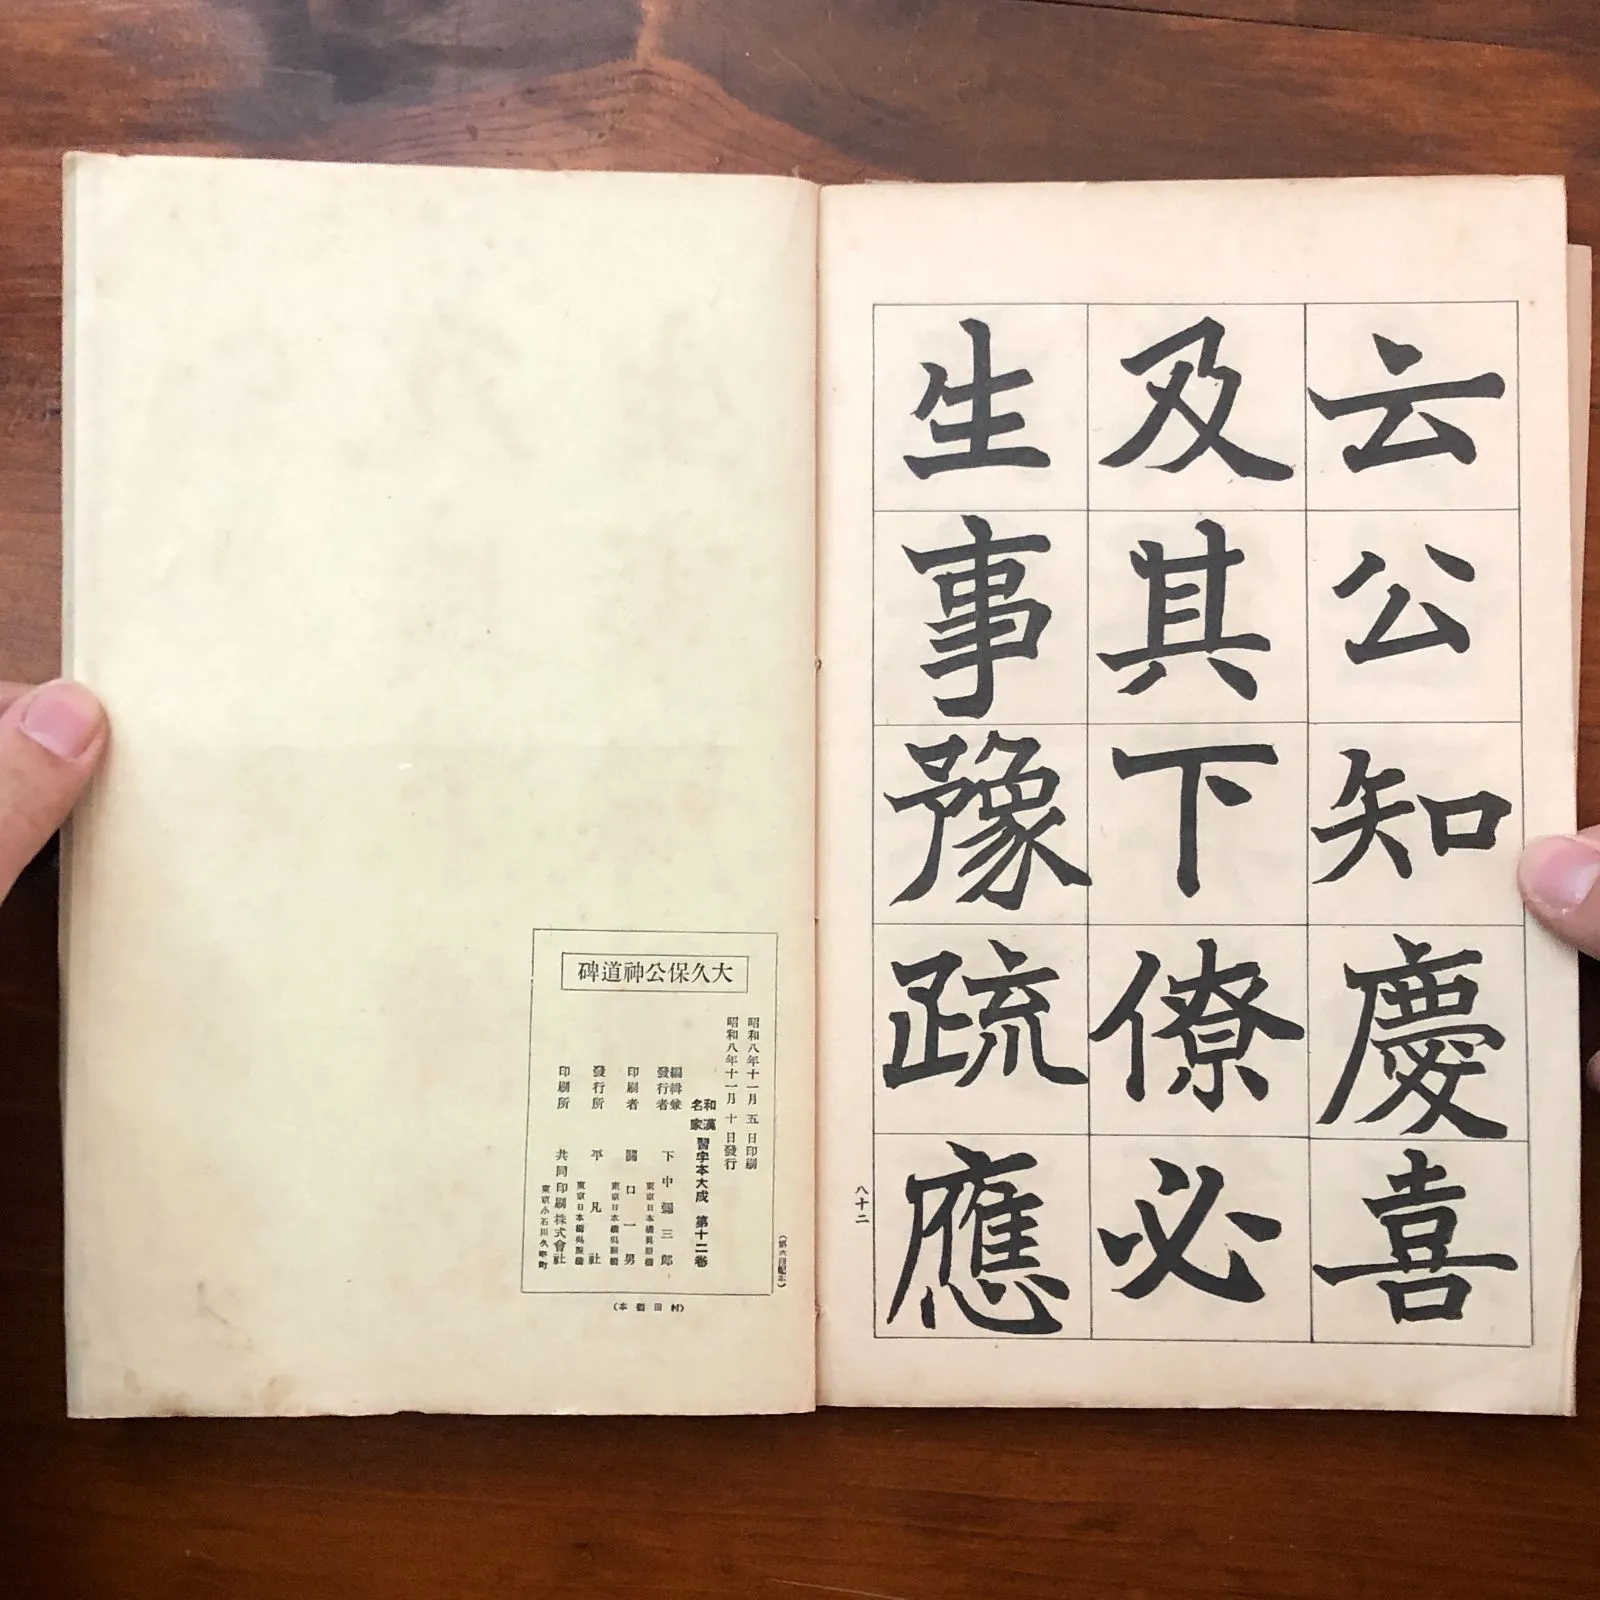 云公知慶喜
及其下僚必
生事豫疏應
八十二
大久保公神道碑
昭和八年十一月五日印刷
昭和八年十一月十日發行
和漢名家習字本大成 第十二卷
編輯兼發行者 下中彌三郎
東京日本橋吳服橋
印刷者 關口一男
東京日本橋吳服橋
發行所 平凡社
東京日本橋吳服橋
印刷所 共同印刷株式會社
東京小石川久堅町
(第六回配本)
(村田製本)